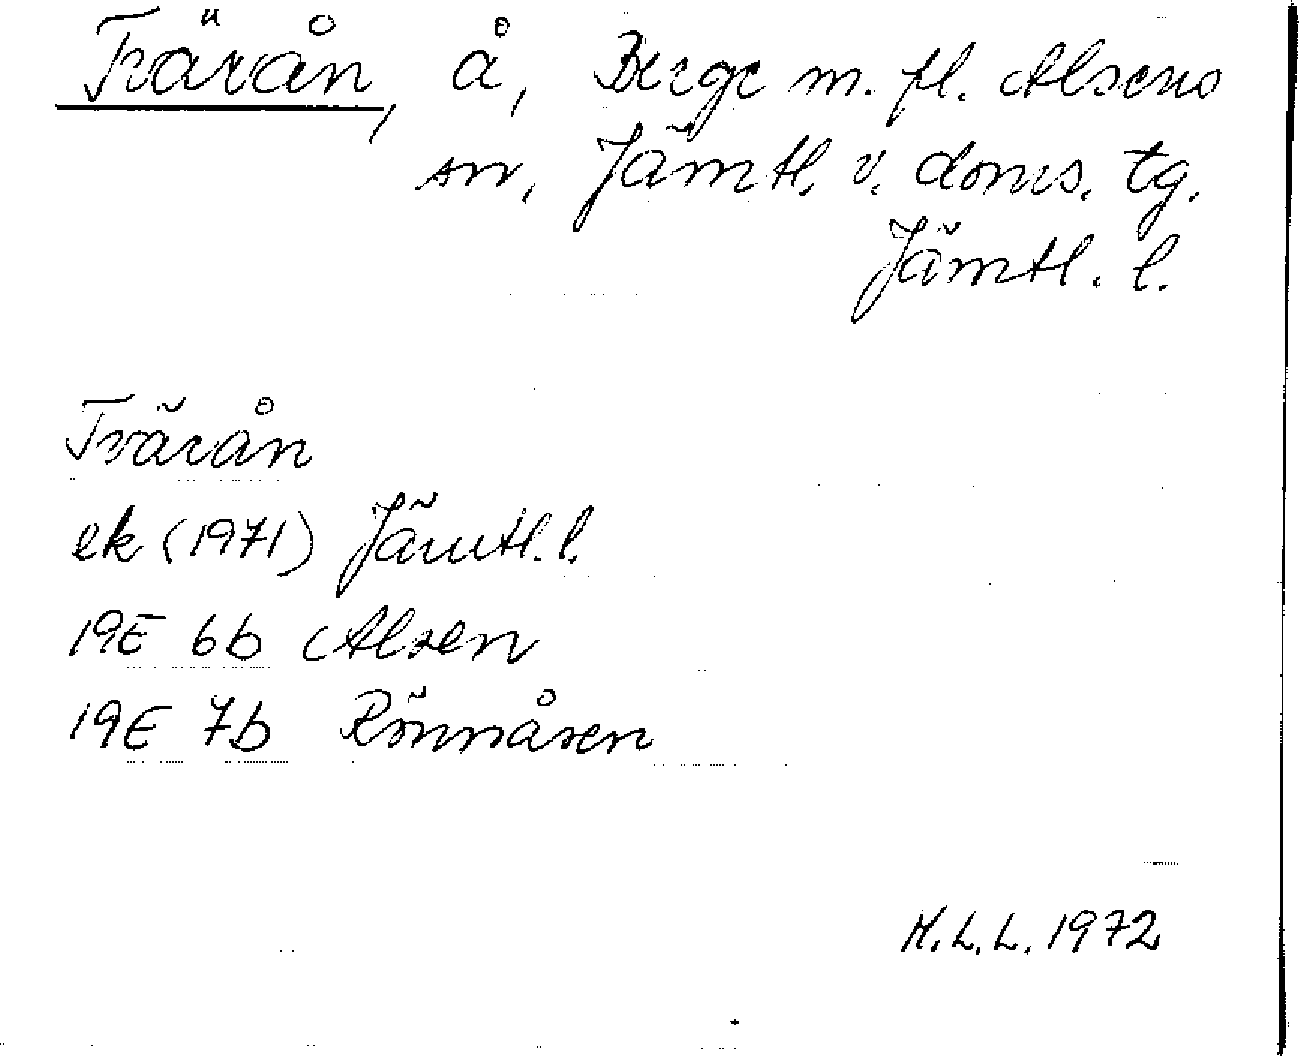 Tvärån, å, Berge m. fl. Alsens
sn, Jämtl. v. doms. tg.
Jämtl. l.
Tvärån
ek (1971) Jämtl. l.
19E 6b Alsen
19E 7b Rönnåsen
M.L.L. 1972